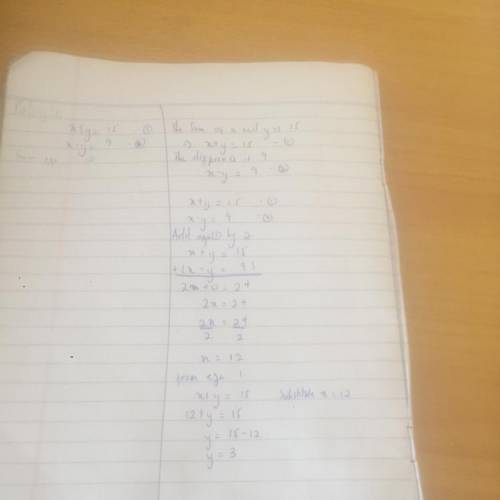 x+y = 15 ①
x-y = 9 ②
The sum of x and y is 15
⇒ x+y = 15 - ①
The difference is 9
x-y = 9 - ②
x+y = 15 - ①
x-y = 9 - ②
Add eqn① by 2
x+y = 15
+(x-y = 9)
2x+0 = 24
2x = 24
2x = 24
2 2
x = 12
from eqn 1
x+y = 15 substitute x = 12
12+y = 15
y = 15-12
y = 3